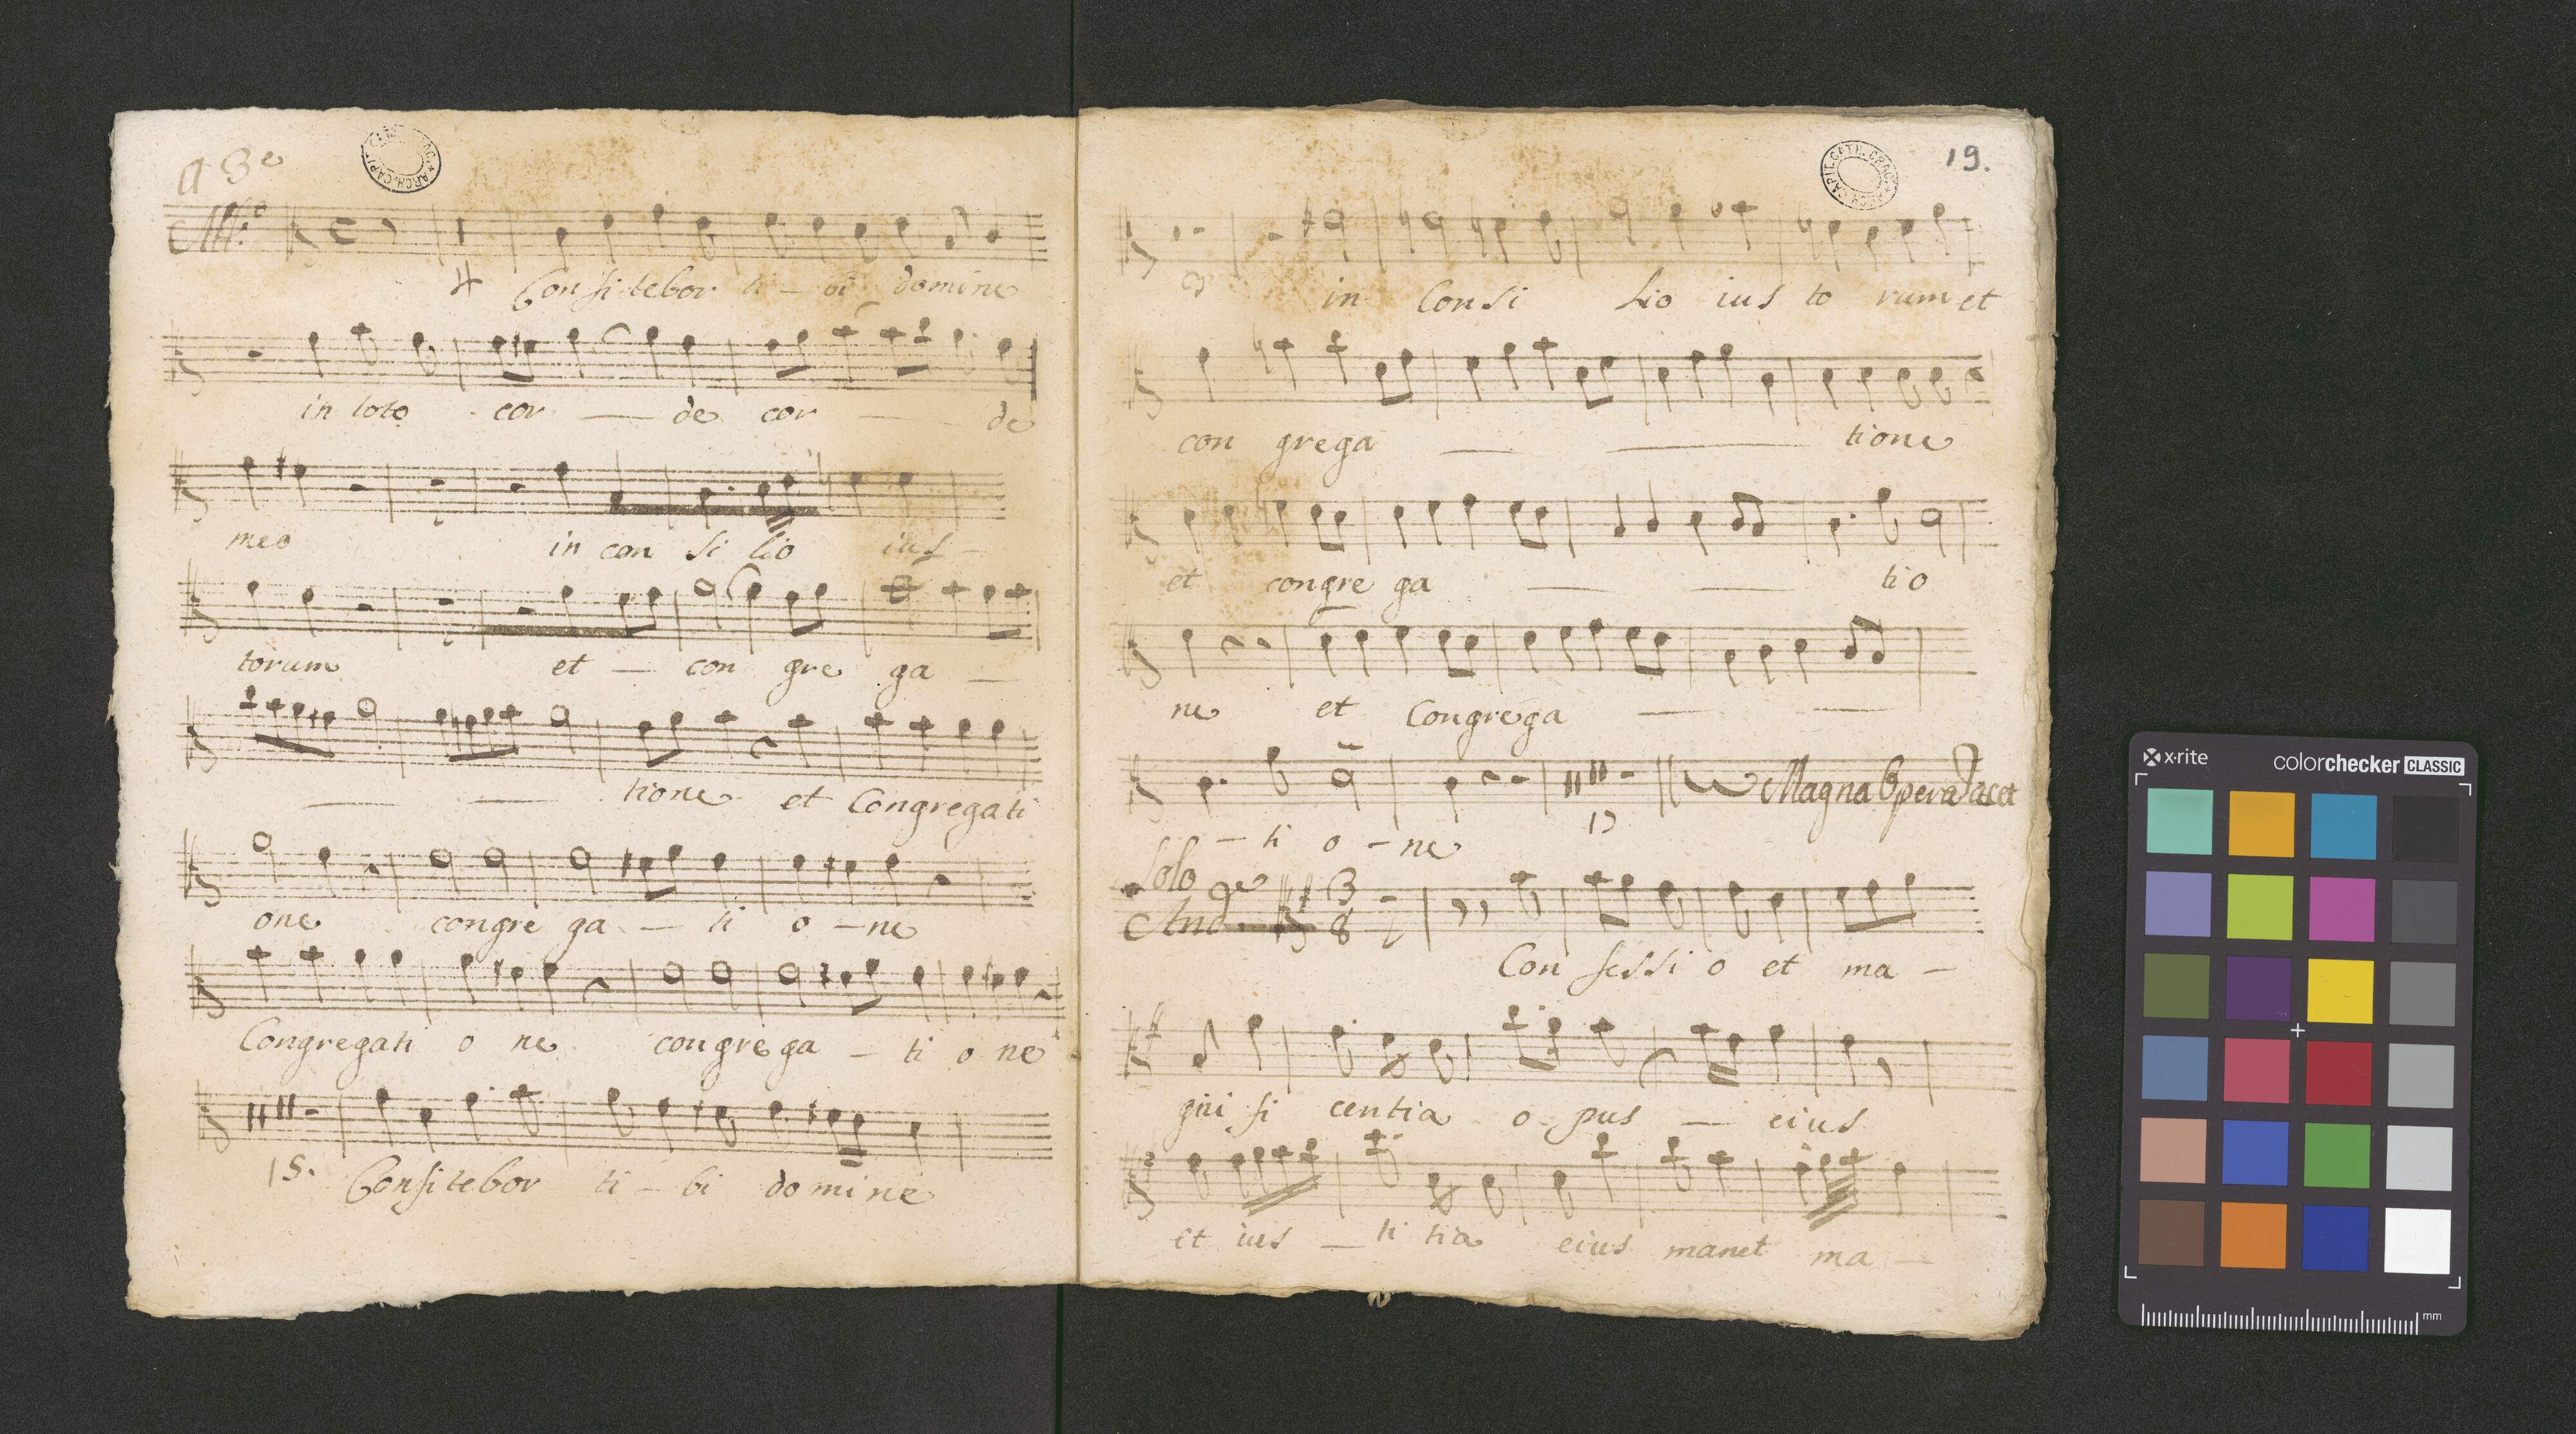 a 3e
ARCH. CAPIT. CATH. CRAC.
All:o
4 Confitebor ti - bi domine
in toto cor - de cor - de
meo in con si lio ius -
torum et - con gre ga -
tione et Congregati
one congre ga - ti o - ne
Congregati o ne congrega - ti o ne
15. Confitebor ti - bi domine
19.
ARCH. CAPIT. CATH. CRAC.
3 in Consi lio ius to rum et
con grega tione
et congre ga tio
ne et Congrega
Magna Opera Tacet
17
- ti o - ne
Solo
And.e 3 8
Con fessi o et ma -
gni fi centia o pus - eius
et ius - ti tia eius manet ma -
x·rite colorchecker CLASSIC
mm